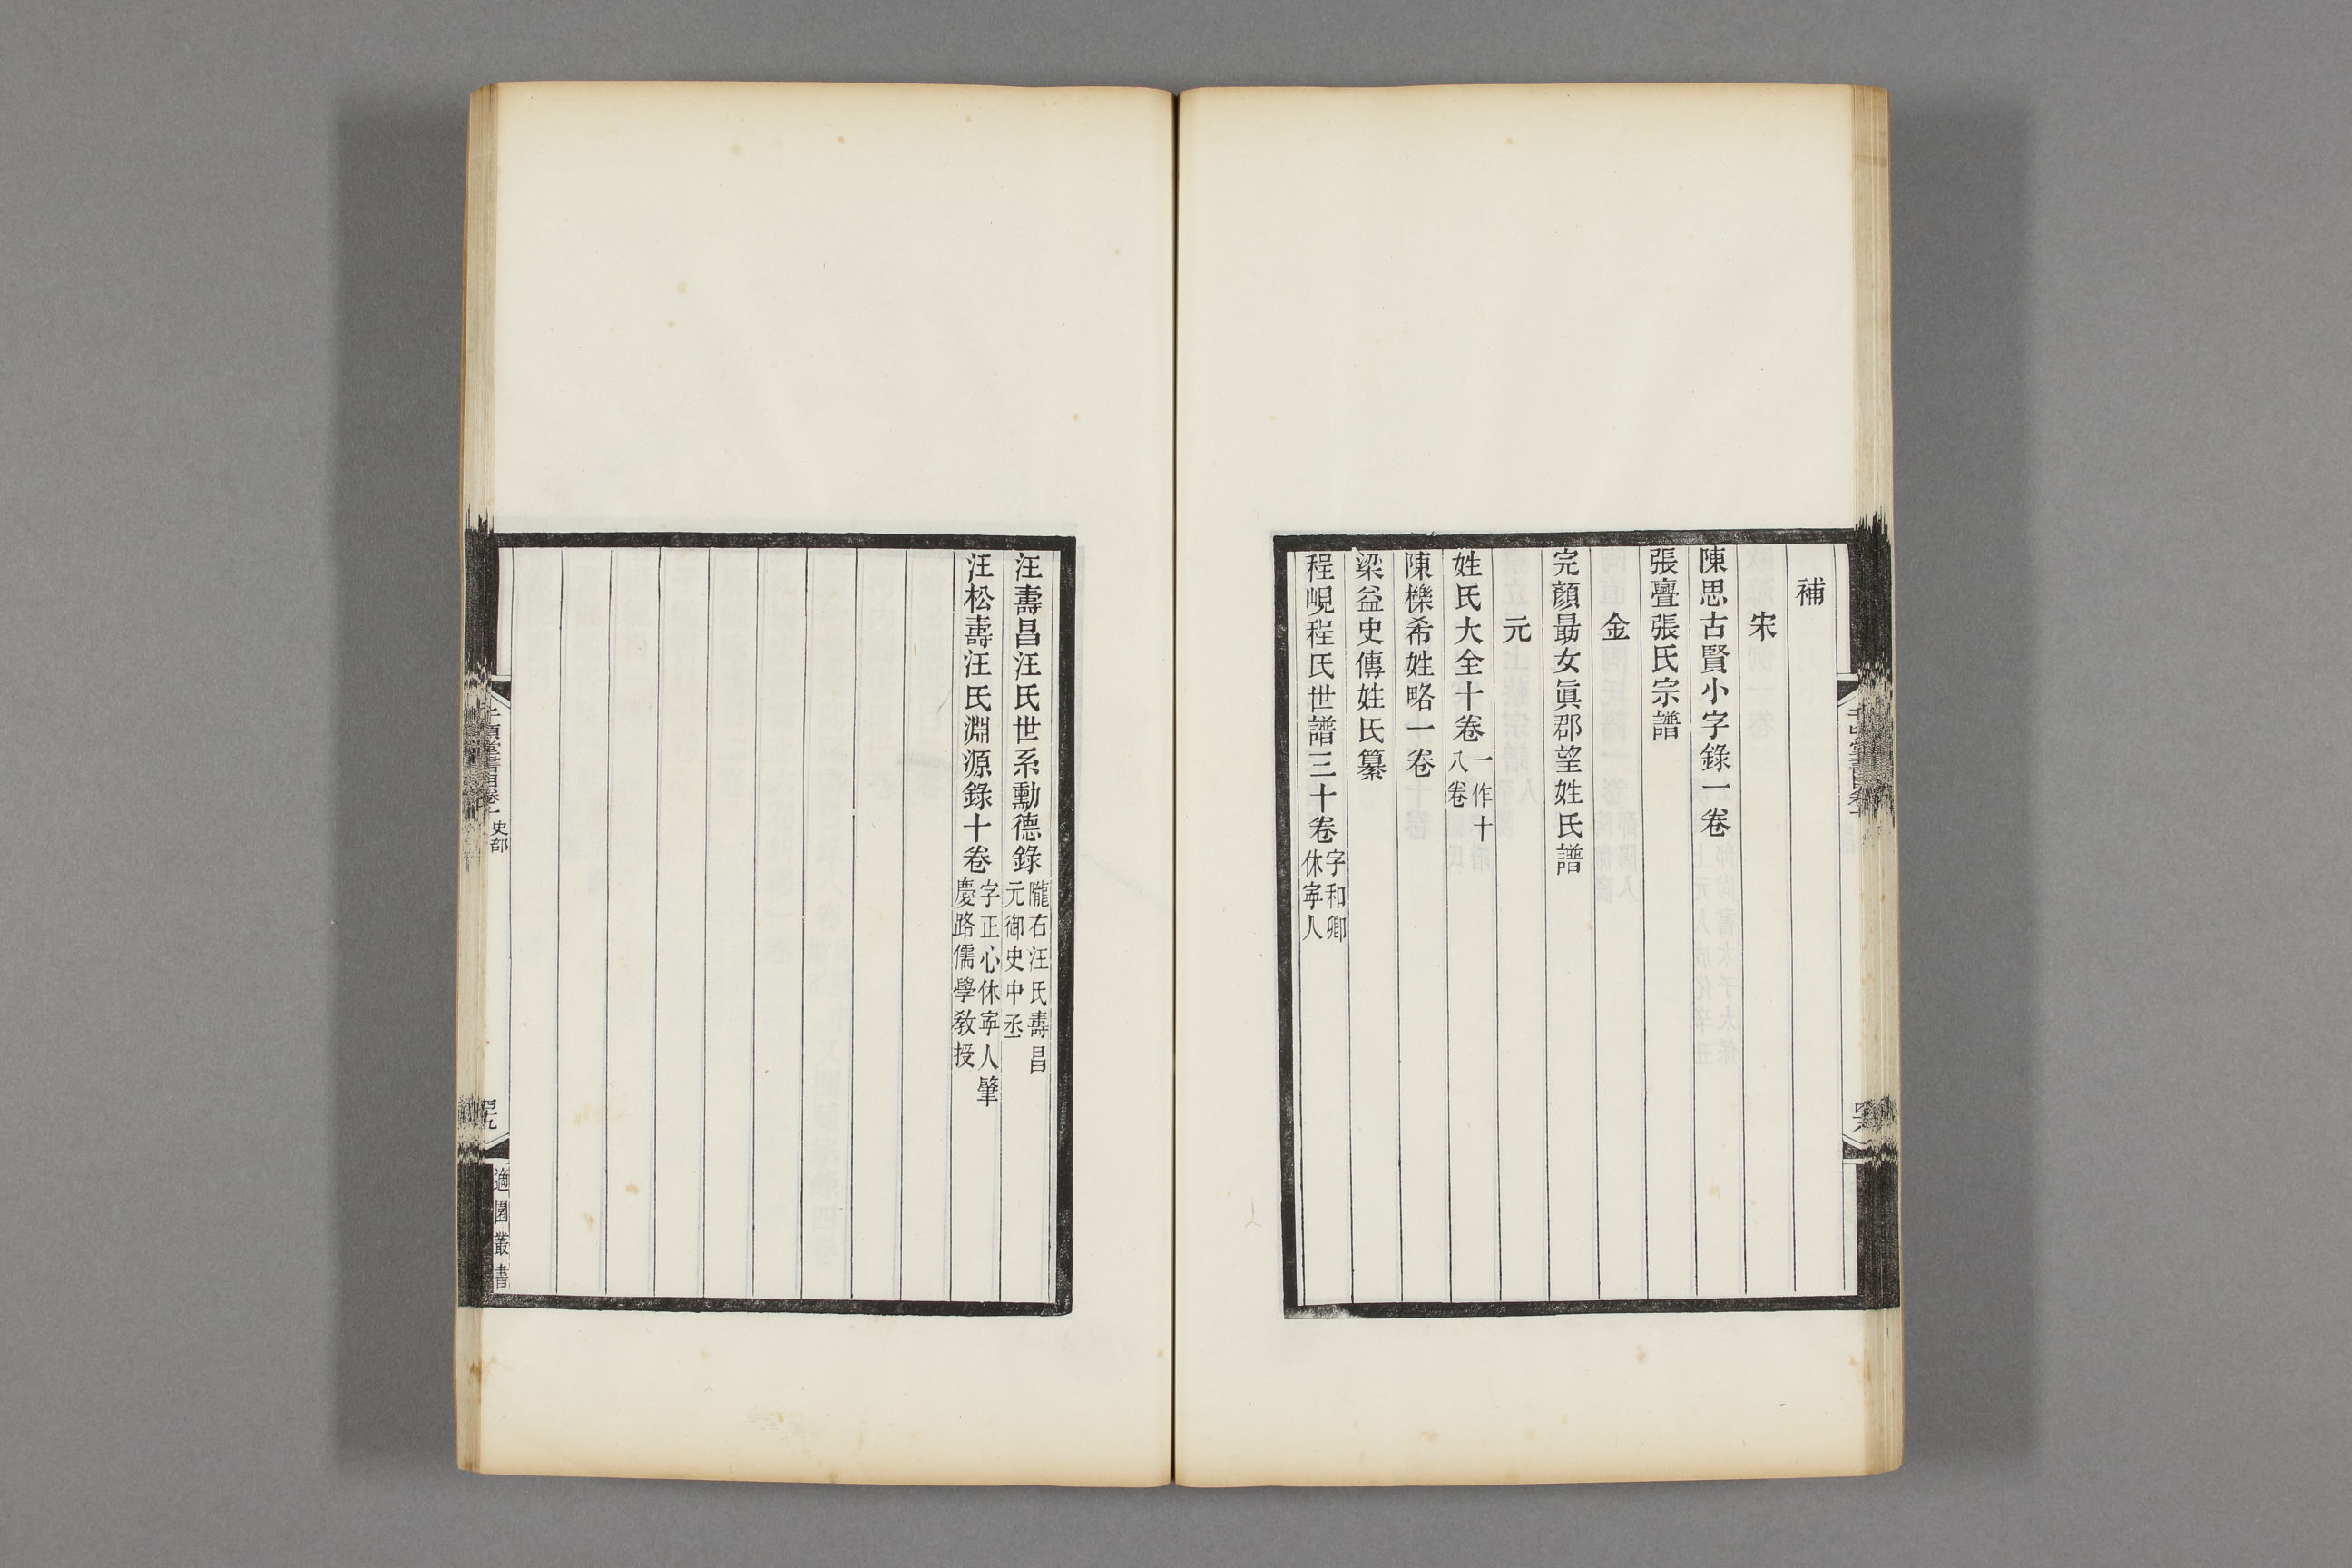 補
宋
陳思古賢小字錄一卷
張亹張氏宗譜
金
完顏勗女眞郡望姓氏譜
元
姓氏大全十卷一作十八卷
陳櫟希姓略一卷
梁益史傳姓氏纂
程峴程氏世譜三十卷字和卿休寍人
汪壽昌汪氏世系勳德錄隴右汪氏壽昌元御史中丞
汪松壽汪氏淵源錄十卷字正心休寍人肇慶路儒學敎授
千頃堂書目卷十 史部
適園叢書